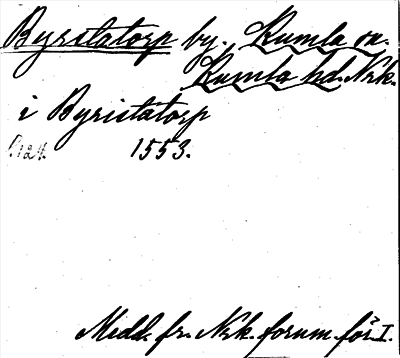 Byrstatorp by. Kumla sn.
Kumla hd. Nrk.
i Byristatorp
1553.
Medd. fr. Nrk. fornm. för. I.